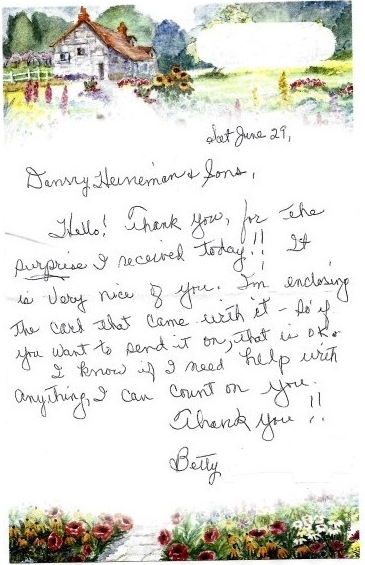 Sat June 29,
Dansry Heineman & Sons,
Hello! Thank you, for the
surprise I received today!! It
is very nice of you. I'm enclosing
the card that came with it - so if
you want to send it on, that is OK.
I know if I need help with
anything, I can count on you.
Thank you !!
Betty